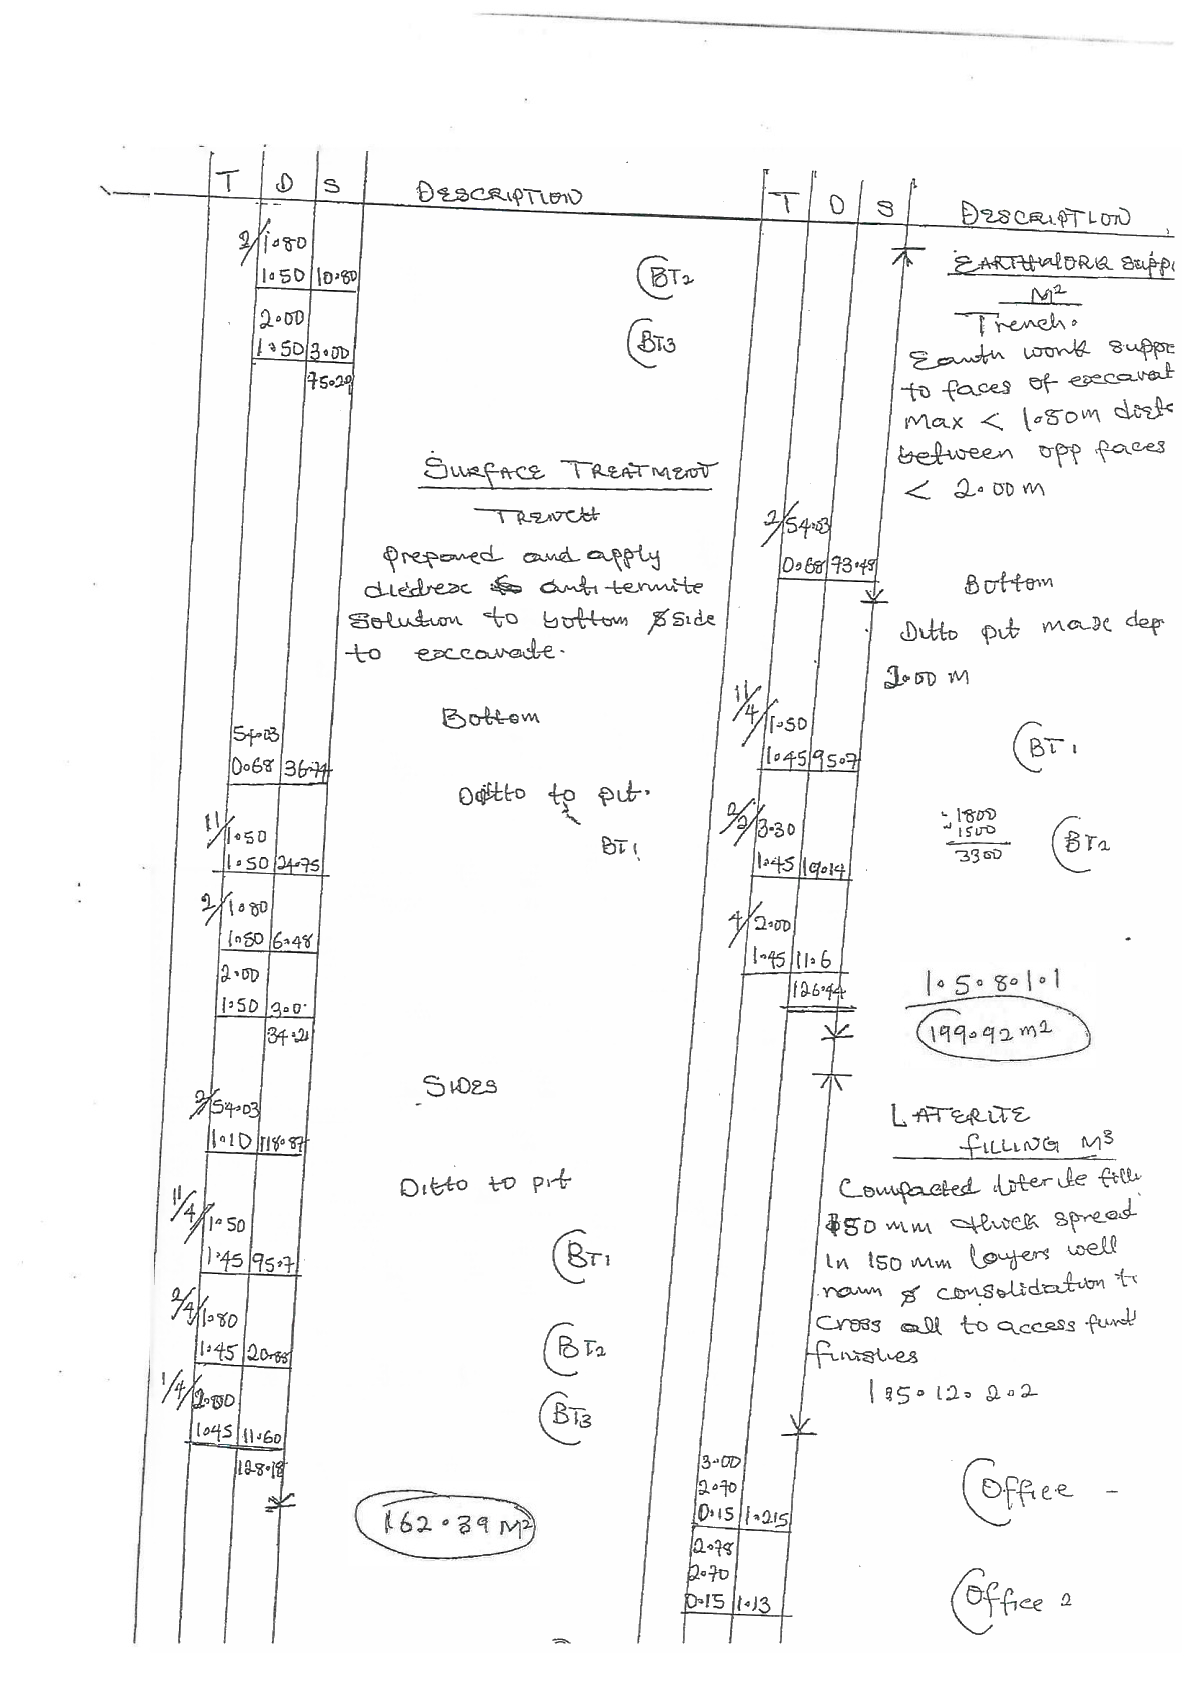 T D S DESCRIPTION
2/1.80
1.50 10.80 BT2
2.00
1.50 3.00 BT3
75.29
SURFACE TREATMENT
TRENCH
prepared and apply
diedrex anti termite
Solution to bottom & side
to exccavate.
Bottom
54.03
0.68 36.74
Ditto to pit.
11/1.50 BT1
1.50 24.75
2/1.80
1.50 6.48
2.00
1.50 3.0
34.21
SIDES
2/54.03
1.10 118.87
Ditto to pit
11/4/1.50
1.45 95.7 BT1
2/4/1.80
1.45 20.88 BT2
1/4/2.00
1.45 11.60 BT3
128.18
162.39 M²
T D S DESCRIPTION
EARTHWORK Supp
M²
Trench.
Earth work suppo
to faces of excavat
Max < 1.80m dist
between opp faces
< 2.00 m
2/54.03
0.68 73.48
Bottom
Ditto pit max dep
2.00 m
11/4/1.50
1.45 95.7 BT1
1800
2/2/3.30 1500 BT2
1.45 19.14 3300
4/2.00
1.45 11.6
126.44
1.5.8.1.1
199.92 m²
LATERITE
FILLING M³
Compacted literite fill
50 mm thick spread
in 150 mm layers well
ramm & consolidation t
cross all to access
finishes
1 5.12.2.2
3.00
2.70 Office -
0.15 1.215
2.78
2.70
0.15 1.13 Office 2